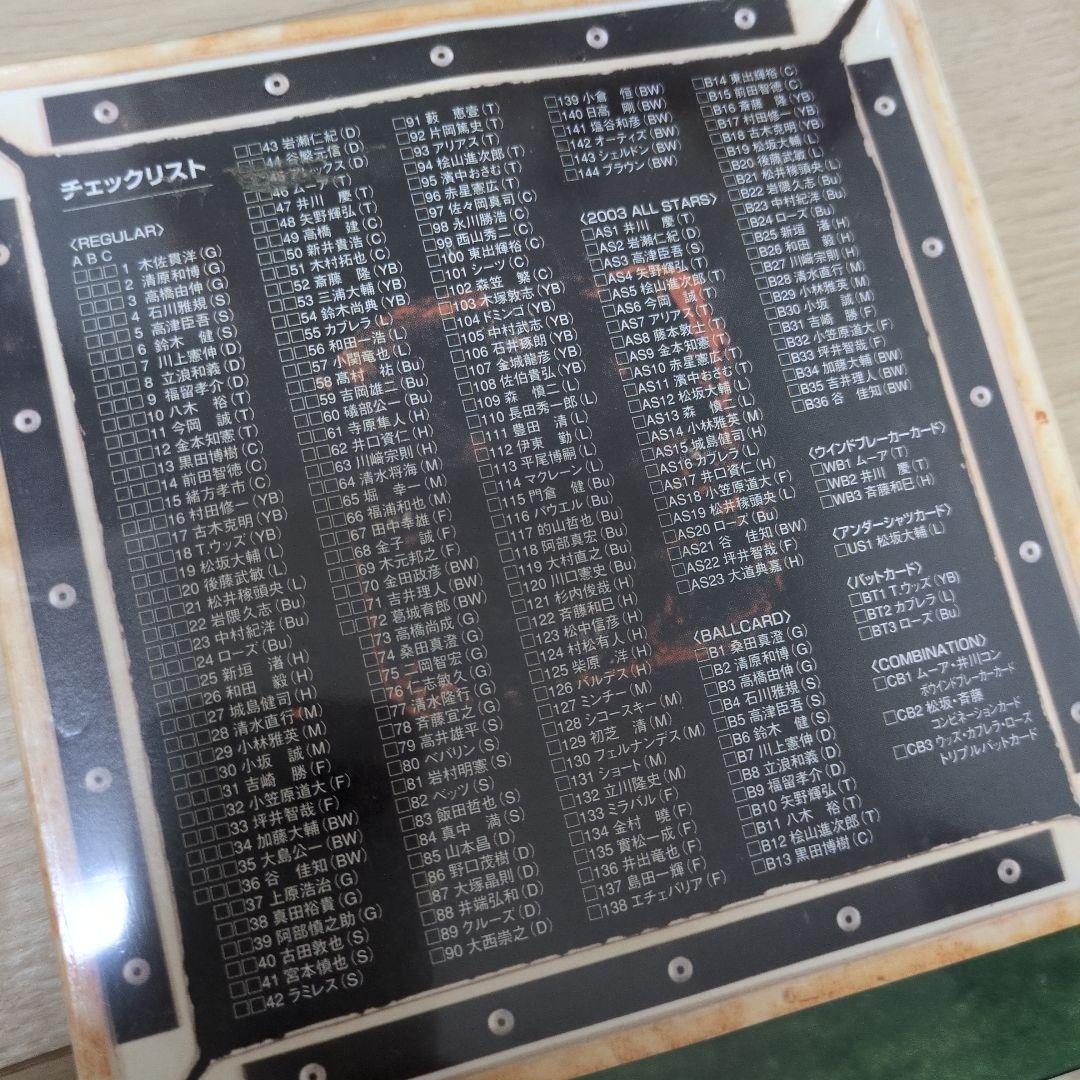 チェックリスト
〈REGULAR〉
A B C
□□□ 1 木佐貫洋(G)
□□□ 2 清原和博(G)
□□□ 3 高橋由伸(G)
□□□ 4 石川雅規(S)
□□□ 5 高津臣吾(S)
□□□ 6 鈴木 健(S)
□□□ 7 川上憲伸(D)
□□□ 8 立浪和義(D)
□□□ 9 福留孝介(D)
□□□10 八木 裕(T)
□□□11 今岡 誠(T)
□□□12 金本知憲(T)
□□□13 黒田博樹(C)
□□□14 前田智徳(C)
□□□15 緒方孝市(C)
□□□16 村田修一(YB)
□□□17 古木克明(YB)
□□□18 T.ウッズ(YB)
□□□19 松坂大輔(L)
□□□20 後藤武敏(L)
□□□21 松井稼頭央(L)
□□□22 岩隈久志(Bu)
□□□23 中村紀洋(Bu)
□□□24 ローズ(Bu)
□□□25 新垣 渚(H)
□□□26 和田 毅(H)
□□□27 城島健司(H)
□□□28 清水直行(M)
□□□29 小林雅英(M)
□□□30 小坂 誠(M)
□□□31 吉崎 勝(F)
□□□32 小笠原道大(F)
□□□33 坪井智哉(F)
□□□34 加藤大輔(BW)
□□□35 大島公一(BW)
□□□36 谷 佳知(BW)
□□37 上原浩治(G)
□□38 真田裕貴(G)
□□39 阿部慎之助(G)
□□40 古田敦也(S)
□□41 宮本慎也(S)
□□42 ラミレス(S)
□□43 岩瀬仁紀(D)
□□44 谷繁元信(D)
(D)
46 ムーア(T)
□□47 井川 慶(T)
□□48 矢野輝弘(T)
□□49 高橋 建(C)
□□50 新井貴浩(C)
□□51 木村拓也(C)
□□52 斎藤 隆(YB)
□□53 三浦大輔(YB)
□□54 鈴木尚典(YB)
□□55 カブレラ(L)
□□56 和田一浩(L)
□□57 小関竜也(L)
□□58 高村 祐(Bu)
□□59 吉岡雄二(Bu)
□□60 礒部公一(Bu)
□□61 寺原隼人(H)
□□62 井口資仁(H)
□□63 川﨑宗則(H)
□□64 清水将海(M)
□□65 堀 幸一(M)
□□66 福浦和也(M)
□□67 田中幸雄(F)
□□68 金子 誠(F)
□□69 木元邦之(F)
□□70 金田政彦(BW)
□□71 吉井理人(BW)
□□72 葛城育郎(BW)
□73 高橋尚成(G)
□74 桑田真澄(G)
□75 二岡智宏(G)
□76 仁志敏久(G)
□77 清水隆行(G)
□78 斉藤宜之(G)
□79 高井雄平(S)
□80 ベバリン(S)
□81 岩村明憲(S)
□82 ベッツ(S)
□83 飯田哲也(S)
□84 真中 満(S)
□85 山本昌(D)
□86 野口茂樹(D)
□87 大塚晶則(D)
□88 井端弘和(D)
□89 クルーズ(D)
□90 大西崇之(D)
□91 藪 恵壹(T)
□92 片岡篤史(T)
□93 アリアス(T)
□94 桧山進次郎(T)
□95 濱中おさむ(T)
□96 赤星憲広(T)
□97 佐々岡真司(C)
□98 永川勝浩(C)
□99 西山秀二(C)
□100 東出輝裕(C)
□101 シーツ(C)
□102 森笠 繁(C)
□103 木塚敦志(YB)
□104 ドミンゴ(YB)
□105 中村武志(YB)
□106 石井琢朗(YB)
□107 金城龍彦(YB)
□108 佐伯貴弘(YB)
□109 森 慎二(L)
□110 長田秀一郎(L)
□111 豊田 清(L)
□112 伊東 勤(L)
□113 平尾博嗣(L)
□114 マクレーン(L)
□115 門倉 健(Bu)
□116 パウエル(Bu)
□117 的山哲也(Bu)
□118 阿部真宏(Bu)
□119 大村直之(Bu)
□120 川口憲史(Bu)
□121 杉内俊哉(H)
□122 斉藤和巳(H)
□123 松中信彦(H)
□124 村松有人(H)
□125 柴原 洋(H)
□126 バルデス(H)
□127 ミンチー(M)
□128 シコースキー(M)
□129 初芝 清(M)
□130 フェルナンデス(M)
□131 ショート(M)
□132 立川隆史(M)
□133 ミラバル(F)
□134 金村 曉(F)
□135 實松一成(F)
□136 井出竜也(F)
□137 島田一輝(F)
□138 エチェバリア(F)
□139 小倉 恒(BW)
□140 日高 剛(BW)
□141 塩谷和彦(BW)
□142 オーティズ(BW)
□143 シェルドン(BW)
□144 ブラウン(BW)
〈2003 ALL STARS〉
□AS1 井川 慶(T)
□AS2 岩瀬仁紀(D)
□AS3 高津臣吾(S)
□AS4 矢野輝弘(T)
□AS5 桧山進次郎(T)
□AS6 今岡 誠(T)
□AS7 アリアス(T)
□AS8 藤本敦士(T)
□AS9 金本知憲(T)
□AS10 赤星憲広(T)
□AS11 濱中おさむ(T)
□AS12 松坂大輔(L)
□AS13 森 慎二(L)
□AS14 小林雅英(M)
□AS15 城島健司(H)
□AS16 カブレラ(L)
□AS17 井口資仁(H)
□AS18 小笠原道大(F)
□AS19 松井稼頭央(L)
□AS20 ローズ(Bu)
□AS21 谷 佳知(BW)
□AS22 坪井智哉(F)
□AS23 大道典嘉(H)
〈BALLCARD〉
□B1 桑田真澄(G)
□B2 清原和博(G)
□B3 高橋由伸(G)
□B4 石川雅規(S)
□B5 高津臣吾(S)
□B6 鈴木 健(S)
□B7 川上憲伸(D)
□B8 立浪和義(D)
□B9 福留孝介(D)
□B10 矢野輝弘(T)
□B11 八木 裕(T)
□B12 桧山進次郎(T)
□B13 黒田博樹(C)
□B14 東出輝裕(C)
□B15 前田智徳(C)
□B16 斎藤 隆(YB)
□B17 村田修一(YB)
□B18 古木克明(YB)
□B19 松坂大輔(L)
□B20 後藤武敏(L)
□B21 松井稼頭央(L)
□B22 岩隈久志(Bu)
□B23 中村紀洋(Bu)
□B24 ローズ(Bu)
□B25 新垣 渚(H)
□B26 和田 毅(H)
□B27 川﨑宗則(H)
□B28 清水直行(M)
□B29 小林雅英(M)
□B30 小坂 誠(M)
□B31 吉崎 勝(F)
□B32 小笠原道大(F)
□B33 坪井智哉(F)
□B34 加藤大輔(BW)
□B35 吉井理人(BW)
□B36 谷 佳知(BW)
〈ウインドブレーカーカード〉
□WB1 ムーア(T)
□WB2 井川 慶(T)
□WB3 斉藤和巳(H)
〈アンダーシャツカード〉
□US1 松坂大輔(L)
〈バットカード〉
□BT1 T.ウッズ(YB)
□BT2 カブレラ(L)
□BT3 ローズ(Bu)
〈COMBINATION〉
□CB1 ムーア・井川コン
ボウインドブレーカーカード
□CB2 松坂・斉藤
コンビネーションカード
□CB3 ウッズ・カブレラ・ローズ
トリプルバットカード